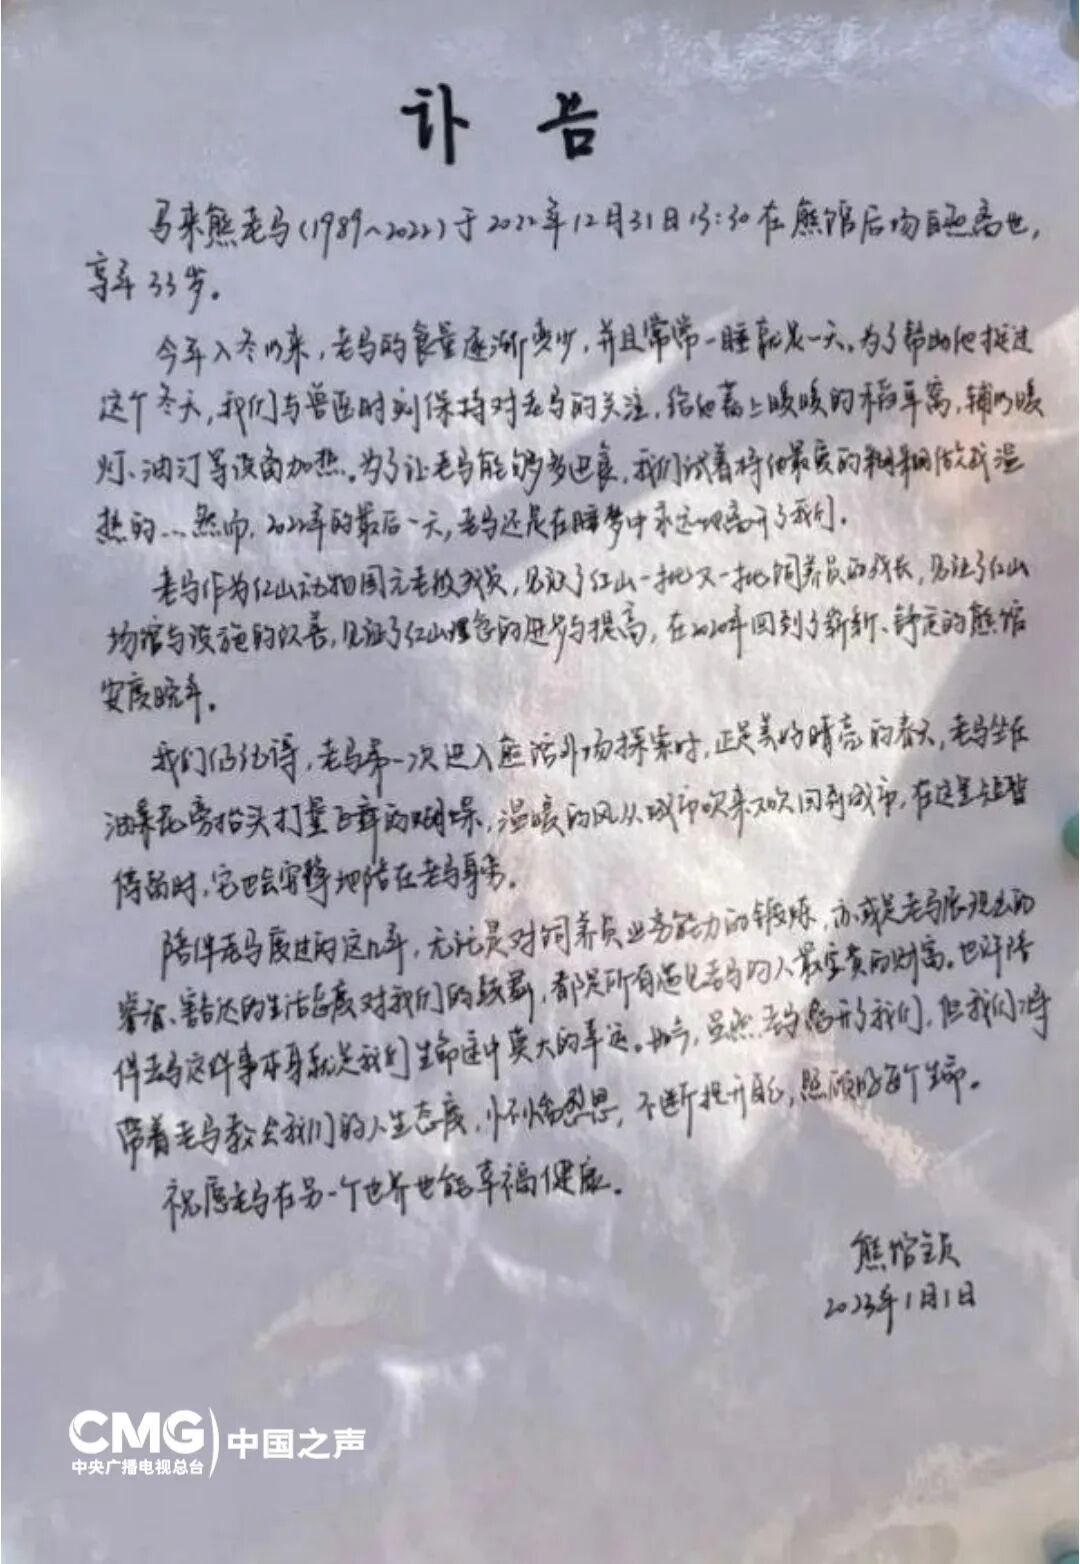 讣 告
马来熊老马(1989~2022)于2022年12月31日13:30在熊馆后场自然离世,
享年33岁。
今年入冬以来,老马的食量逐渐变少,并且常常一睡就是一天。为了帮助他挺过
这个冬天,我们与兽医时刻保持对老马的关注,给他蓄上暖暖的稻草窝,辅以暖
灯、油汀等设备加热。为了让老马能够多进食,我们试着将他最爱的糊糊做成温
热的…然而,2022年的最后一天,老马还是在睡梦中永远地离开了我们。
老马作为红山动物园元老级成员,见证了红山一批又一批饲养员的成长,见证了红山
场馆与设施的改善,见证了红山理念的进步与提高,在2020年回到了崭新、舒适的熊馆
安度晚年。
我们仍记得,老马第一次进入熊馆外场探索时,正是美好晴亮的春天,老马坐在
油菜花旁抬头打量飞舞的蝴蝶,温暖的风从城市吹来又吹回到城市,在这里短暂
停留时,它也会安静地陪在老马身旁。
陪伴老马度过的这几年,无论是对饲养员业务能力的锻炼,亦或是老马展现出的
睿智、豁达的生活态度对我们的鼓励,都是所有遇见老马的人最宝贵的财富。也许陪
伴老马这件事本身就是我们生命途中莫大的幸运。如今,虽然老马离开了我们,但我们将
带着老马教会我们的人生态度,心怀思,不断提升自己,照顾好每个生命。
祝愿老马在另一个世界也能幸福健康。
熊馆全员
2023年1月1日
CMG 中国之声
中央广播电视总台